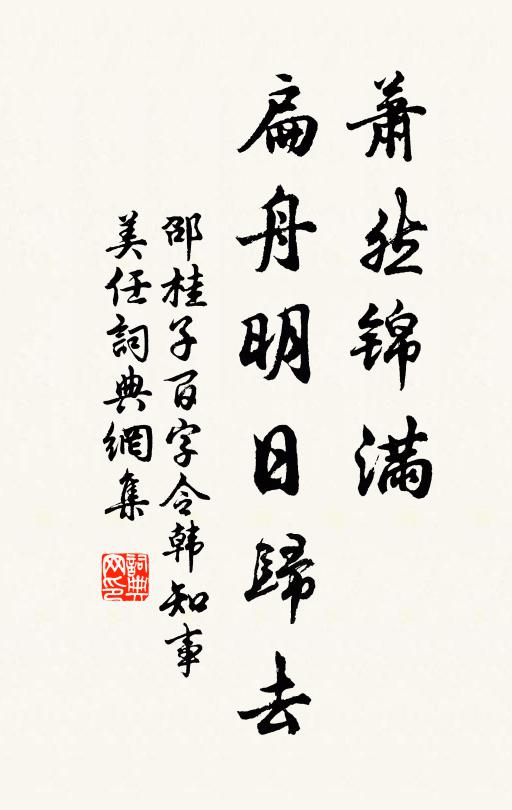 蕭然錦滿
扁舟明日歸去
邵桂子百字令韩知事
美任詞典網集
詞典网印